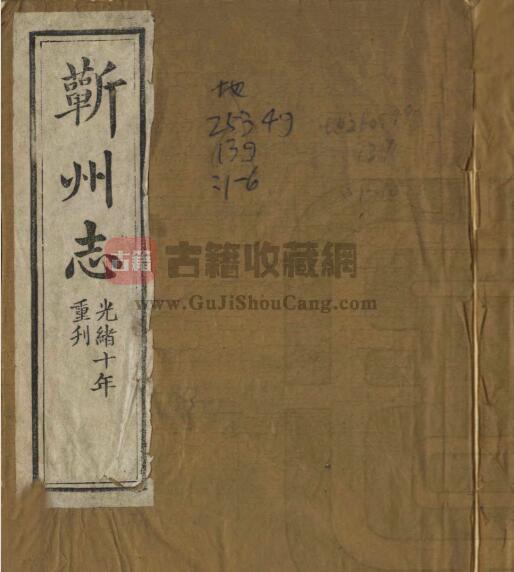 蘄州志
光緒十年
重刋
地
25349
139
:1-6
古籍
古籍收藏網
www.GuJiShouCang.com